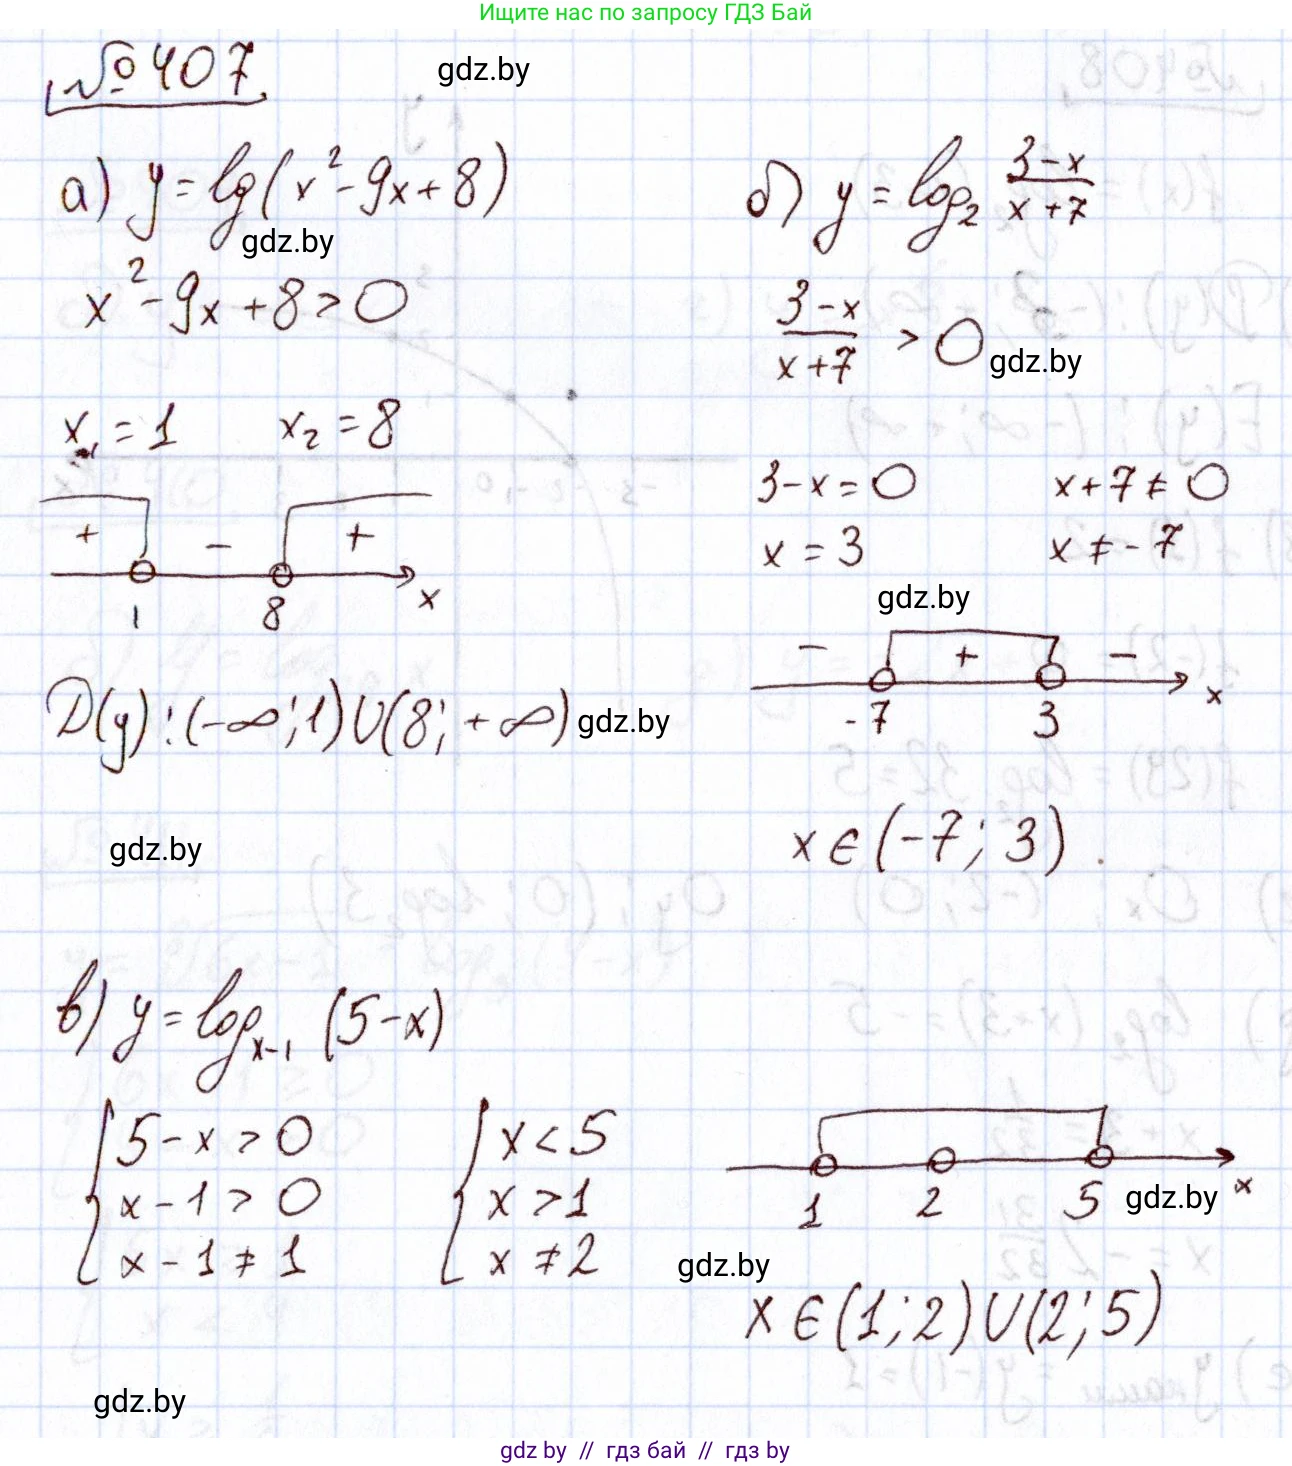 Ищите нас по запросу ГДЗ Бай
№407
gdz.by
а) y = lg(x² - 9x + 8)
gdz.by
x² - 9x + 8 > 0
x₁ = 1 x₂ = 8
+ - +
1 8 x
D(y): (-∞; 1) ∪ (8; +∞)
gdz.by
gdz.by
б) y = log₂ (3-x)/(x+7)
(3-x)/(x+7) > 0
gdz.by
3 - x = 0 x + 7 ≠ 0
x = 3 x ≠ -7
gdz.by
- + -
-7 3 x
x ∈ (-7; 3).
в) y = logₓ₋₁ (5-x)
{ 5 - x > 0 { x < 5
x - 1 > 0 x > 1
x - 1 ≠ 1 x ≠ 2
1 2 5 x
gdz.by
gdz.by
x ∈ (1; 2) ∪ (2; 5)
gdz.by
gdz by // гдз бай // гдз by